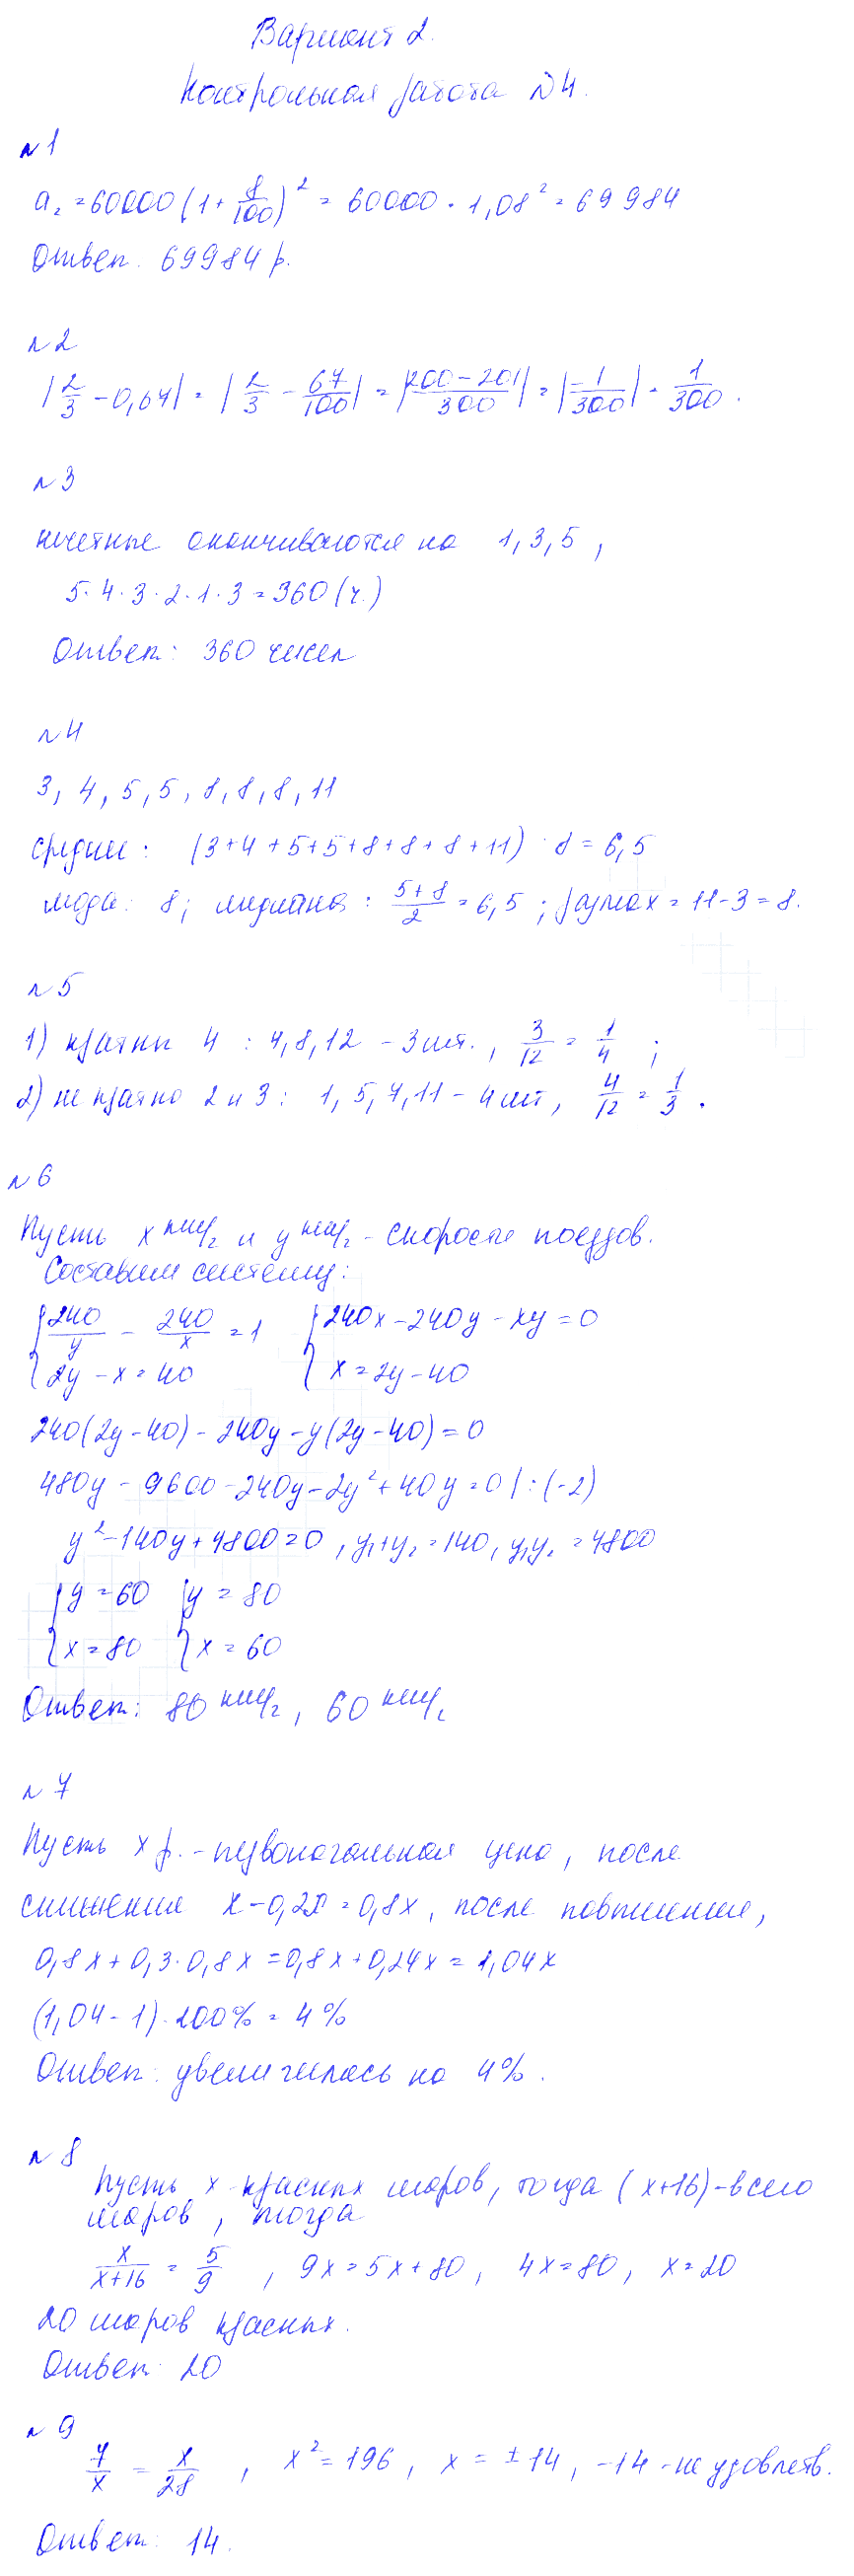 Вариант 2.
Контрольная работа №4.
№1
a₂ = 60000(1 + 8/100)² = 60000 · 1,08² = 69 984
Ответ. 69984 р.
№2
|2/3 - 0,67| = |2/3 - 67/100| = |(200 - 201)/300| = |-1/300| = 1/300.
№3
нечетные оканчиваются на 1, 3, 5,
5·4·3·2·1·3 = 360 (ч.)
Ответ: 360 чисел
№4
3, 4, 5, 5, 8, 8, 8, 11
средние: (3+4+5+5+8+8+8+11) : 8 = 6,5
мода: 8; медиана: (5+8)/2 = 6,5; размах = 11-3 = 8.
№5
1) кратны 4 : 4, 8, 12 - 3 шт., 3/12 = 1/4 ;
2) не кратно 2 и 3: 1, 5, 7, 11 - 4 шт, 4/12 = 1/3.
№6
Пусть x км/ч и y км/ч - скорости поездов.
Составим систему:
{240/y - 240/x = 1 {240x - 240y - xy = 0
{2y - x = 40 {x = 2y - 40
240(2y - 40) - 240y - y(2y - 40) = 0
480y - 9600 - 240y - 2y² + 40y = 0 | : (-2)
y² - 140y + 4800 = 0, y₁+y₂ = 140, y₁y₂ = 4800
{y = 60 {y = 80
{x = 80 {x = 60
Ответ: 80 км/ч, 60 км/ч
№7
Пусть x р. - первоначальная цена, после
снижения x - 0,2x = 0,8x, после повышения,
0,8x + 0,3·0,8x = 0,8x + 0,24x = 1,04x
(1,04 - 1)·100% = 4%
Ответ: увеличилась на 4%.
№8
Пусть x красных шаров, тогда (x+16) - всего
шаров, тогда
x/(x+16) = 5/9, 9x = 5x + 80, 4x = 80, x = 20
20 шаров красных.
Ответ: 20
№9
7/x = x/28, x² = 196, x = ±14, -14 - не удовлетв.
Ответ: 14.